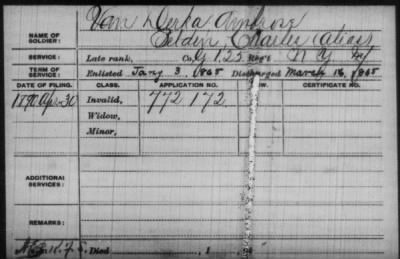 NAME OF SOLDIER: Van Derka Ambrose
Selden, Charles (alias)
SERVICE: Late rank, Co. G 125 Reg't N Y Inf
TERM OF SERVICE: Enlisted Jany 3, 1865 Discharged March 16, 1865
DATE OF FILING. CLASS. APPLICATION NO. LAW. CERTIFICATE NO.
1890 Apr. 30 Invalid, 772172
Widow,
Minor,
ADDITIONAL SERVICES:
REMARKS:
Died , 1